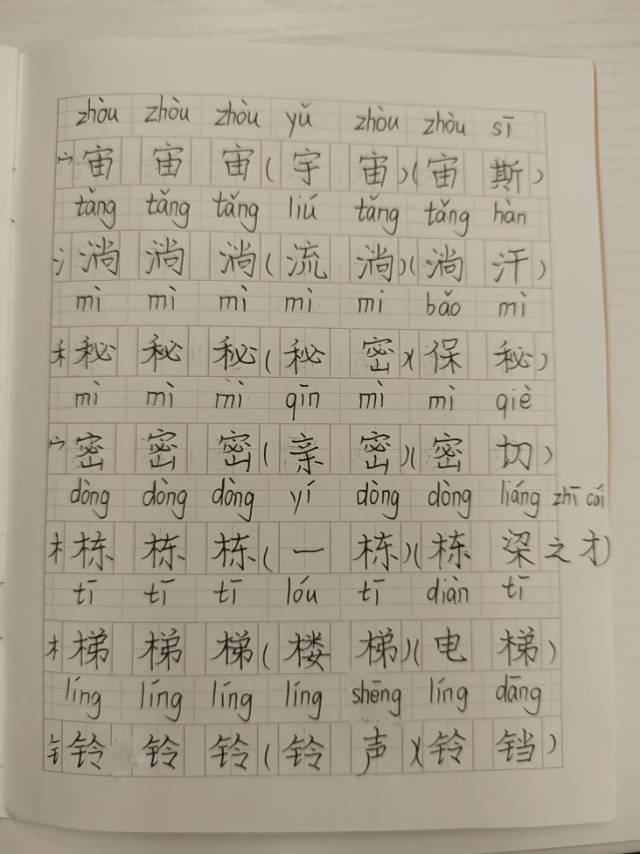 zhòu zhòu zhòu yǔ zhòu zhòu sī
宀宙 宙 宙(宇 宙)(宙 斯)
tǎng tǎng tǎng liú tǎng tǎng hàn
氵淌 淌 淌(流 淌)(淌 汗)
mì mì mì mì mì bǎo mì
禾秘 秘 秘(秘 密)(保 秘)
mì mì mì qīn mì mì qiè
宀密 密 密(亲 密)(密 切)
dòng dòng dòng yí dòng dòng liáng zhī cái
木栋 栋 栋(一 栋)(栋 梁之才)
tī tī tī lóu tī diàn tī
木梯 梯 梯(楼 梯)(电 梯)
líng líng líng líng shēng líng dāng
钅铃 铃 铃(铃 声)(铃 铛)